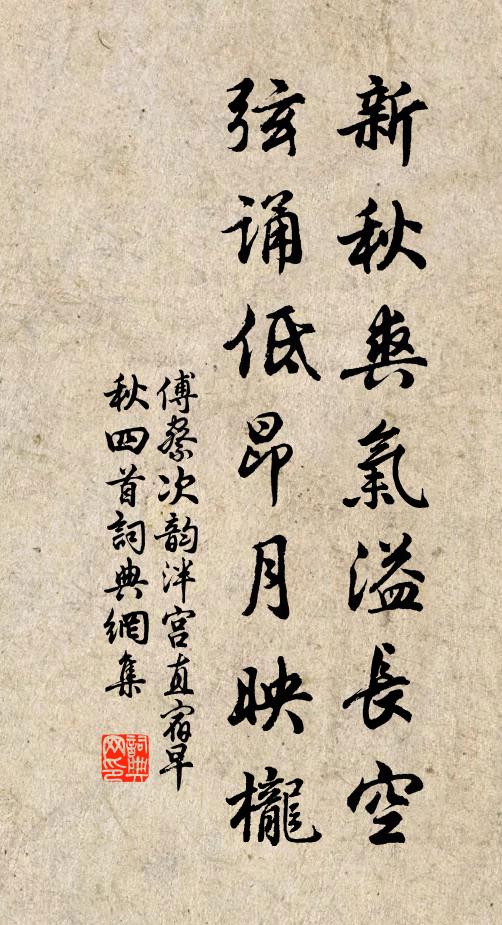 新秋爽氣溢長空
弦诵低昂月映櫳
傅察次韵泮宫直宿早
秋四首詞典網集
詞典
网印